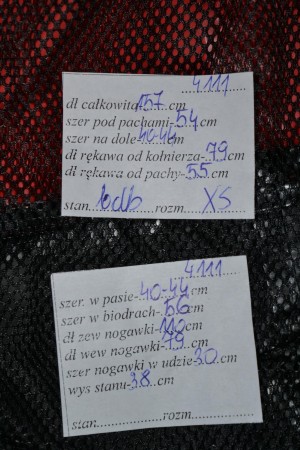 4111
dł całkowita-157 cm
szer pod pachami-54 cm
szer na dole-40-44 cm
dł rękawa od kołnierza-79 cm
dł rękawa od pachy-55 cm
stan bdb rozm. XS
4111
szer. w pasie-40-44 cm
szer w biodrach-56 cm
dł zew nogawki-110 cm
dł wew nogawki-79 cm
szer nogawki w udzie-30 cm
wys stanu-38 cm
stan rozm.